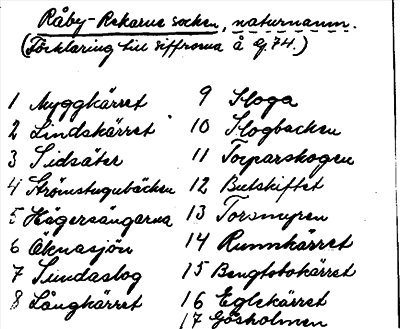 Råby-Rekarne socken, naturnamn.
(Förklaring till siffrorna å G 74.)
1 Myggkärret
2 Lindskärret
3 Sidsäter
4 Strömstugubäcken
5 Hägersängarna
6 Öknasjön
7 Sundaslog
8 Långkärret
9 Sloga
10 Slogbacken
11 Torparskogen
12 Butskiftet
13 Torsmyren
14 Runnkärret
15 Bengtebokärret
16 Eglekärret
17 Gösholmen